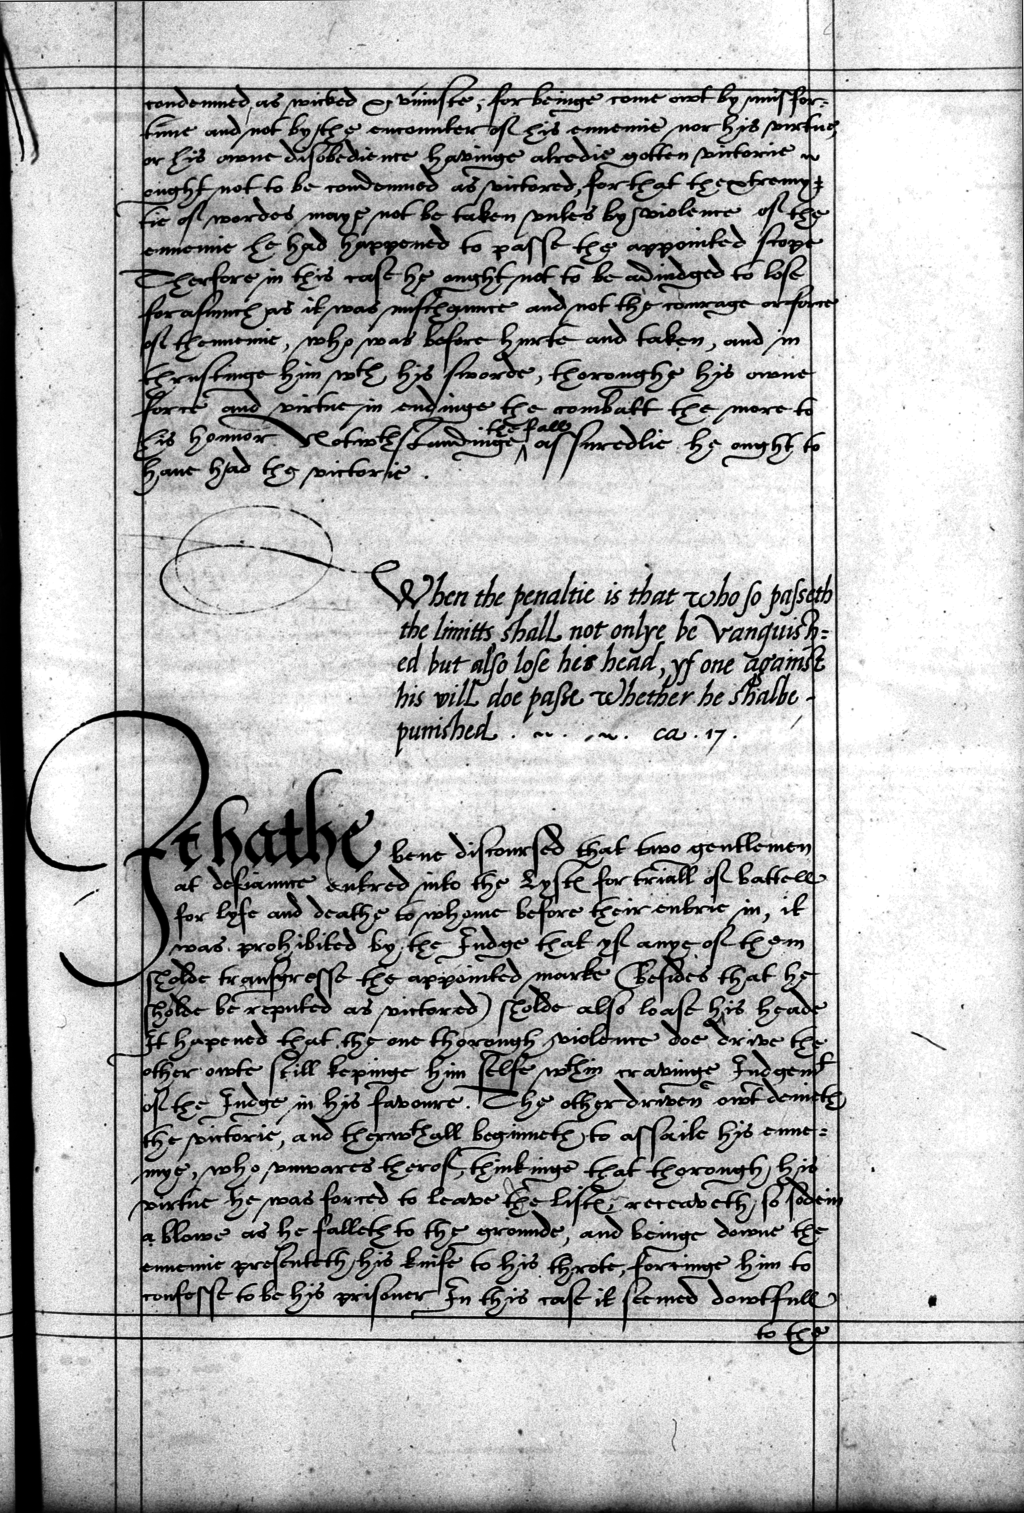 condemned, as wicked & vniuste, for beinge come owt by misfor=
tune and not by the encounter of his ennemie nor his virtue
or his owne disobedience havinge alredie gotten victorie ~
ought not to be condemned as victored, for that thextremy=
tie of wordes maye not be taken vnles by violence of the
ennemie he had happened to passe the appointed scope
Therfore in this case he ought not to be adiudged to lose
forasmuch as it was mischaunce and not the courage or force
of thennemie, who was before hurte and taken, and in
thrustinge him wth his sworde, thoroughe his owne
force and virtue in endinge the combatt the more to
his honnor Notwthstandinge ^the fall assuredlie he ought to
haue had the victorie .
When the penaltie is that who so passeth
the limitts shall not onlye be vanquish=
ed but also lose his head, yf one against
his will doe passe whether he shalbe -
punished . ~ . ~ . ca . 17 .
It hathe bene discoursed that two gentlemen
at defiaunce entred into the Lystes for triall of battell
for lyfe and deathe to whome before their entrie in, it
was prohibited by the Iudge that yf anye of them
sholde transgresse the appointed marke (besides that he
sholde be reputed as victored) sholde also loase his heade
It hapened that the one thorough violence doe drive the
other owte still kepinge him selfe wthin cravinge Iudgemt
of the Iudge in his favoure. The other driven owt denieth
the victorie, and therwthall beginneth to assaile his enne=
mye, who vnwares therof, thinkinge that thorough his
virtue he was forced to leave the listes, receaveth so sodein
a blowe as he falleth to the grounde, and beinge downe the
ennemie presenteth his knife to his throte, forcinge him to
confesse to be his prisoner In this case it seemed dowtfull
to the